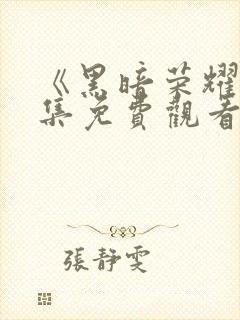 《黑暗荣耀
集免費觀看
張靜雯